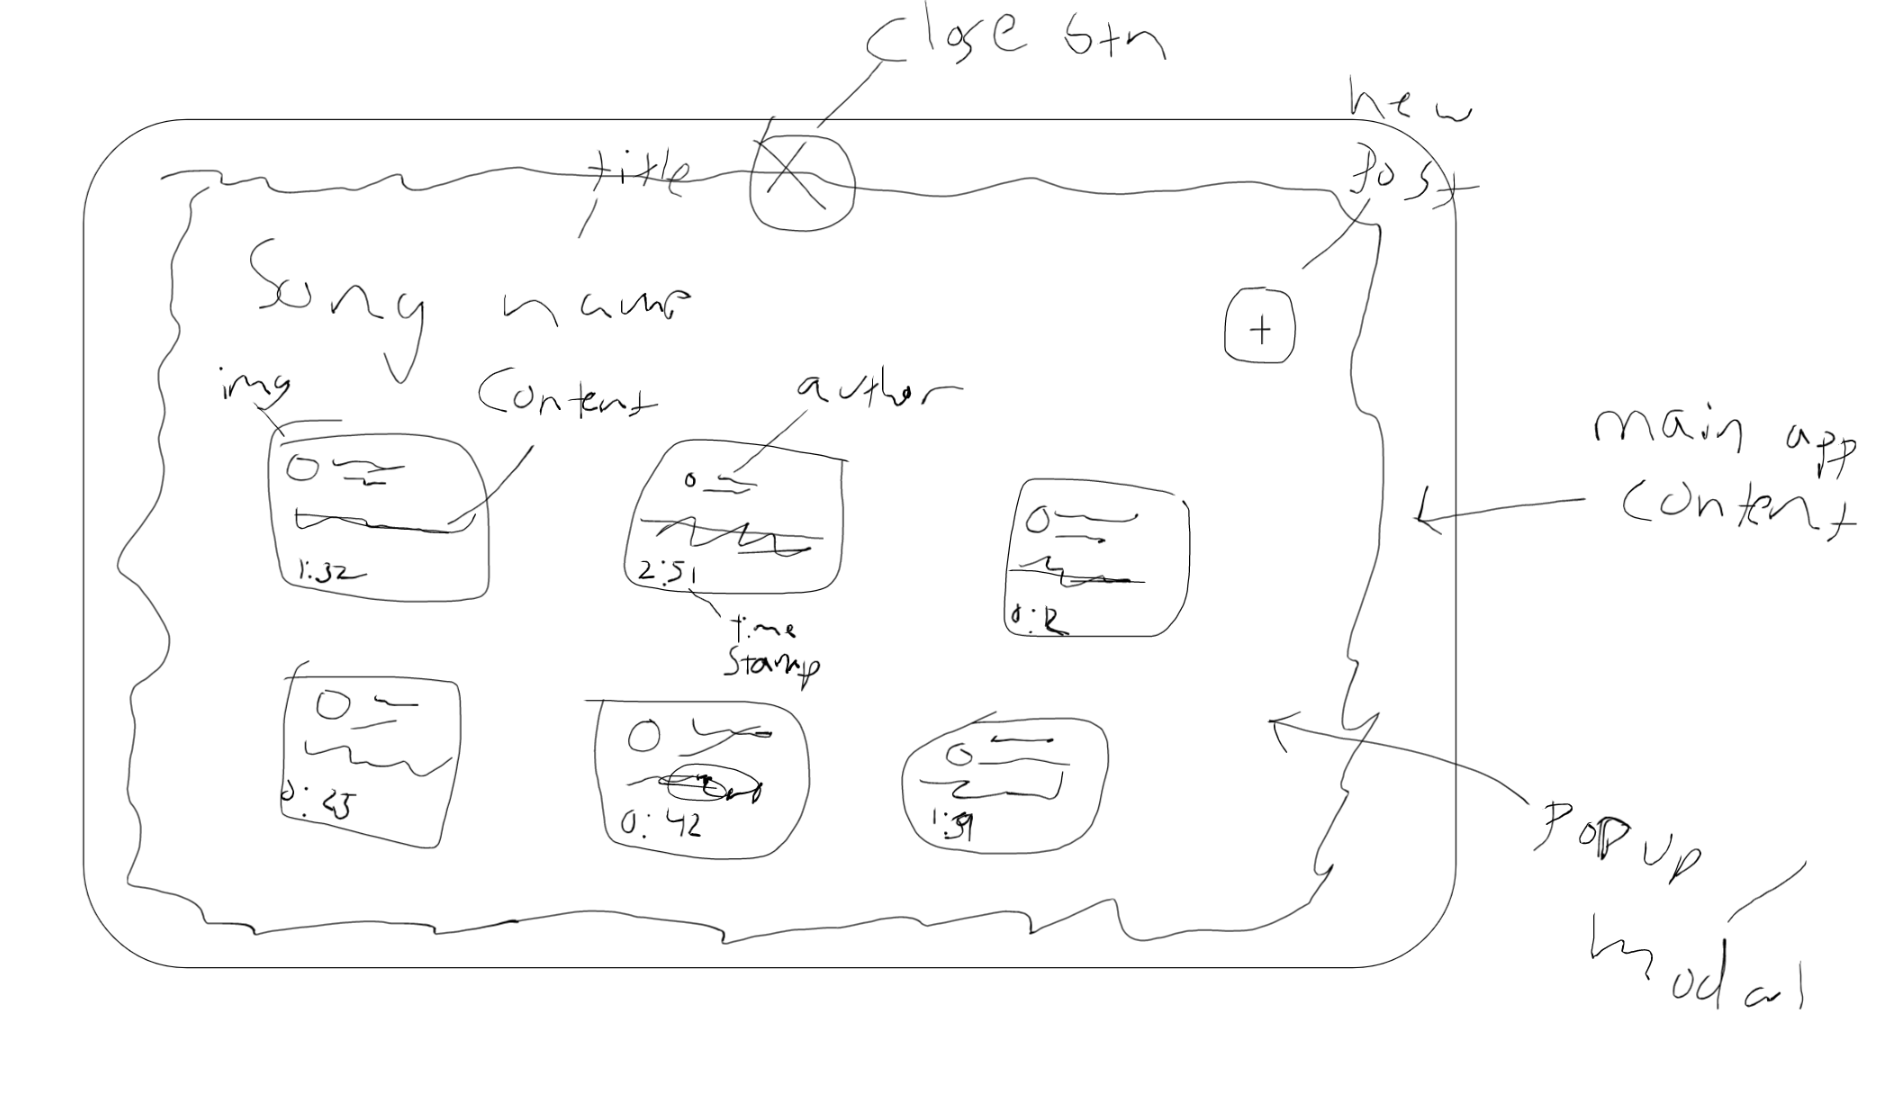 close btn
new
post
title
Song name
+
img
content
author
main app
content
1:32
2:51
0:12
time
stamp
0:25
0:42
1:39
popup
modal